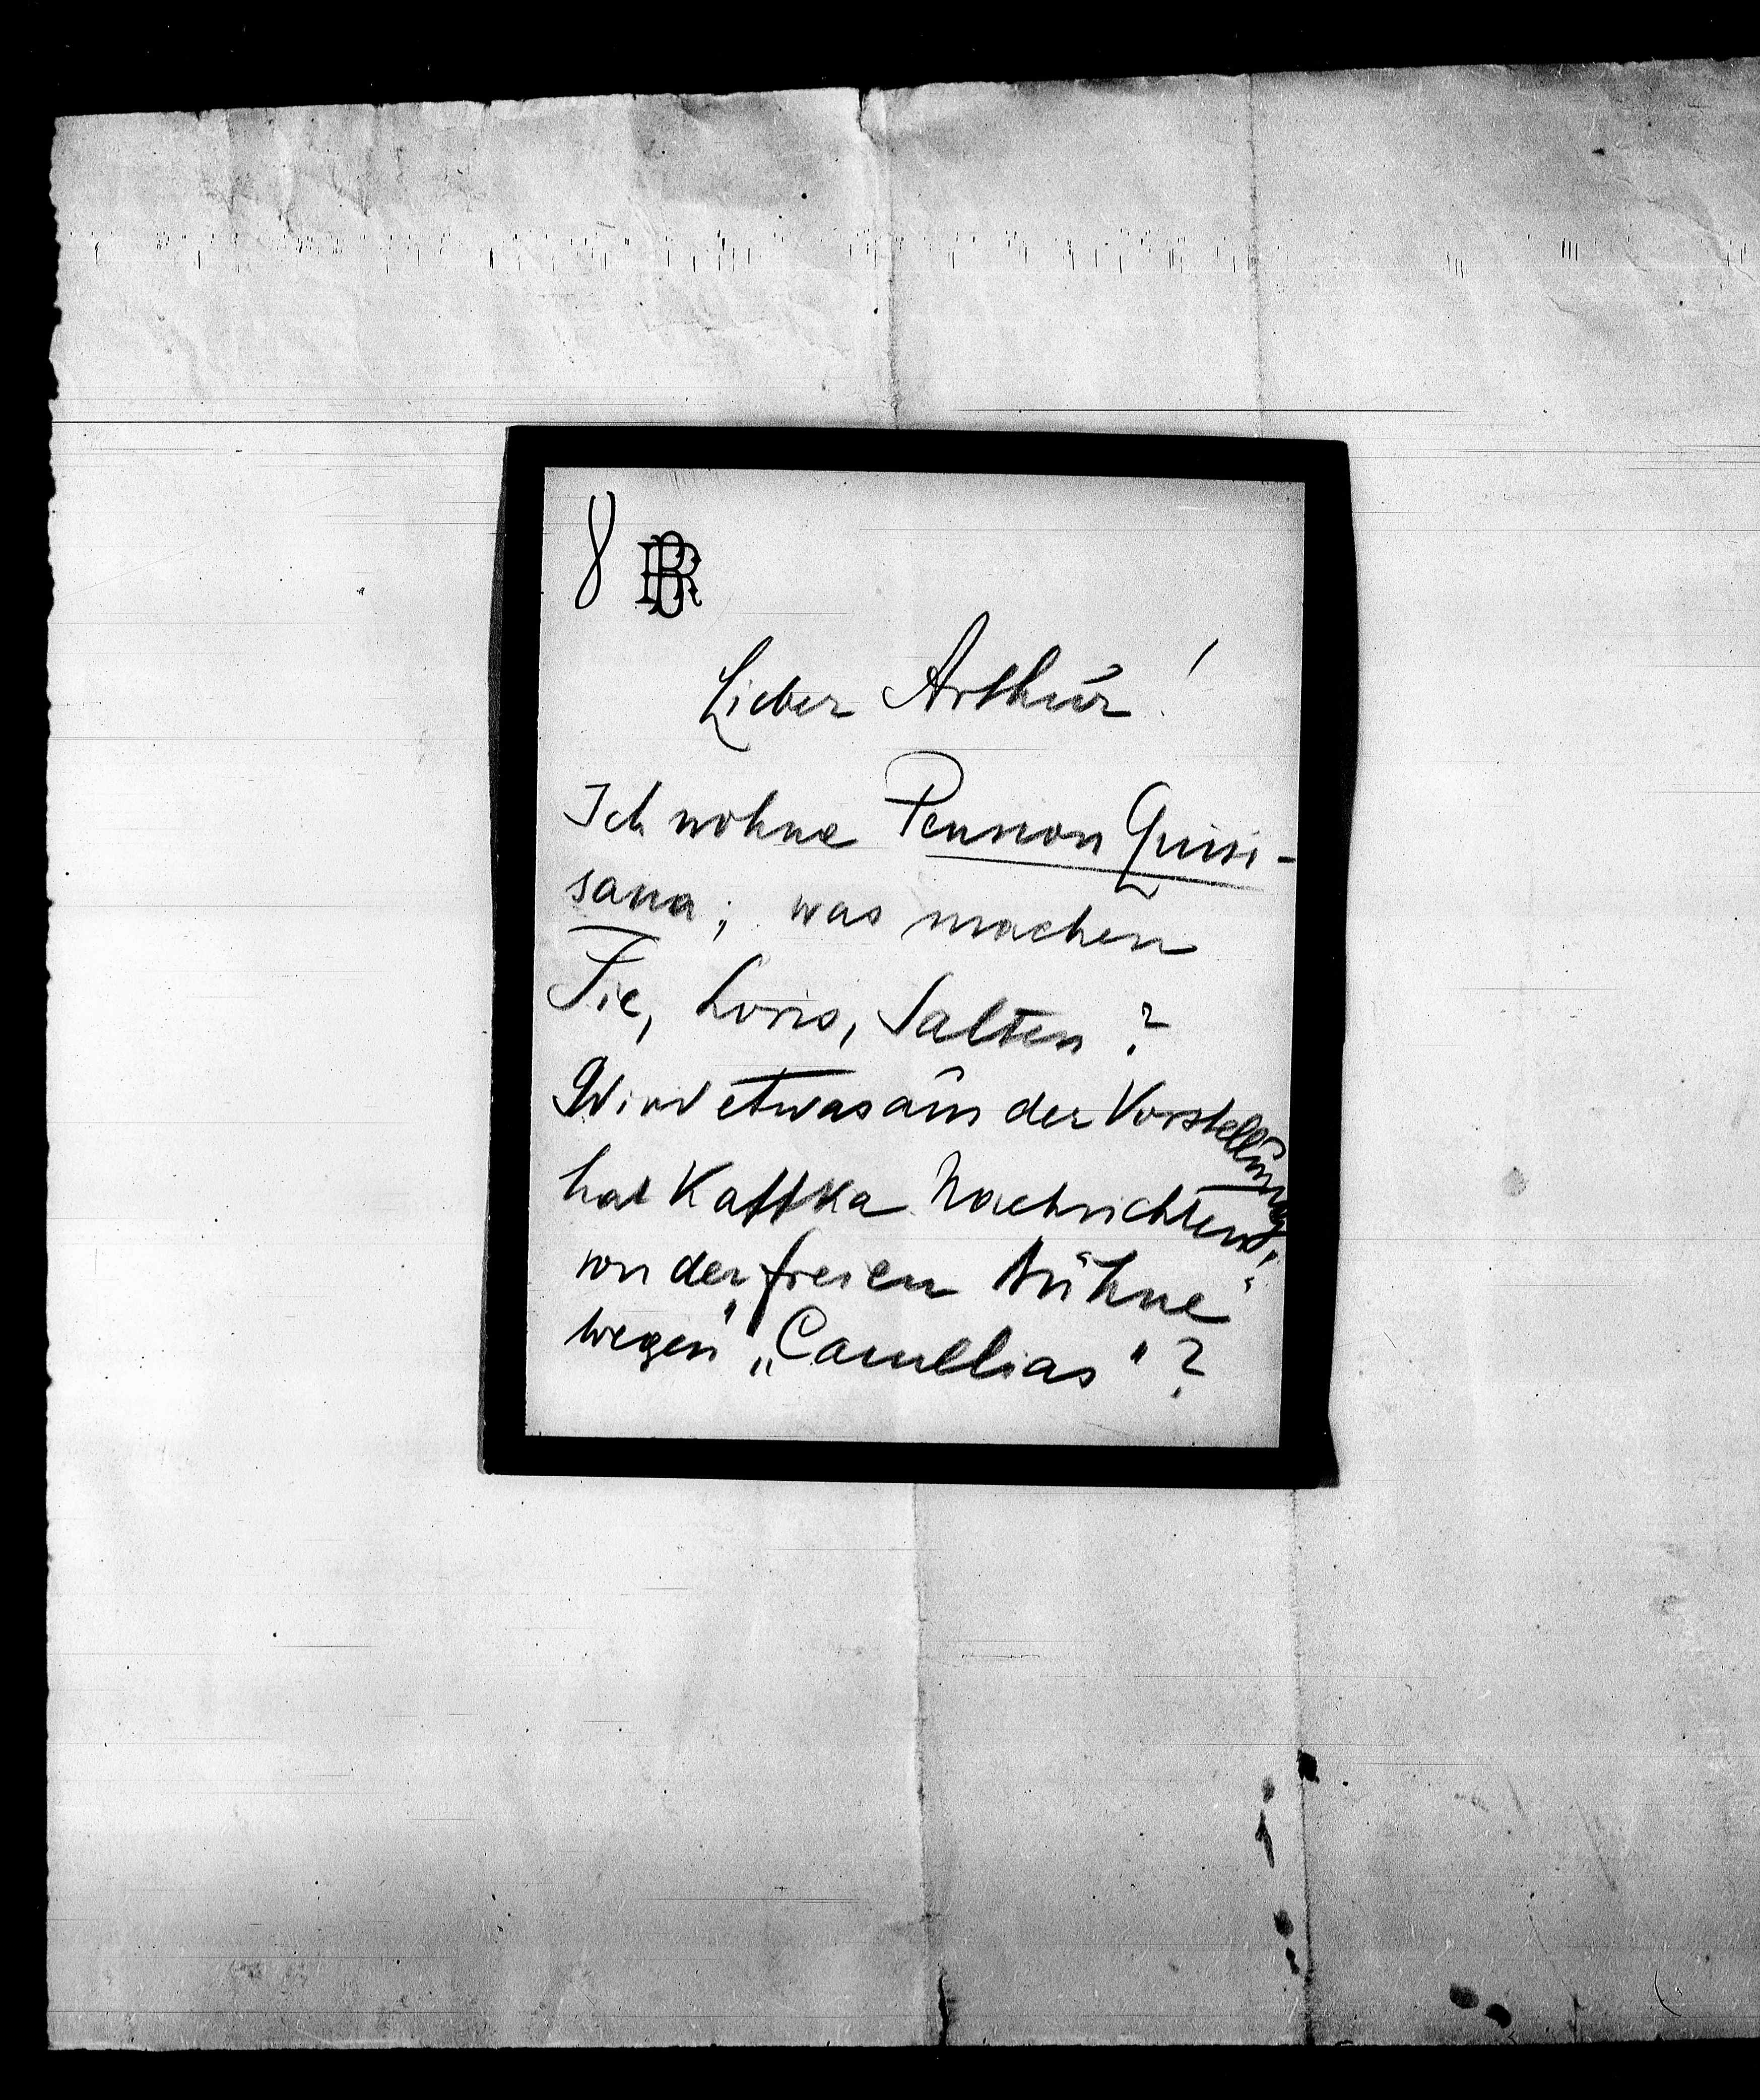 8 BR
Lieber Arthur!
Ich wohne Pension Quisi-
sana; was machen
Sie, Loris, Salten?
Wird etwas aus der Vorstellung,
hat Kafka Nachrichten
von der „freien Bühne“
wegen „Camelias“?